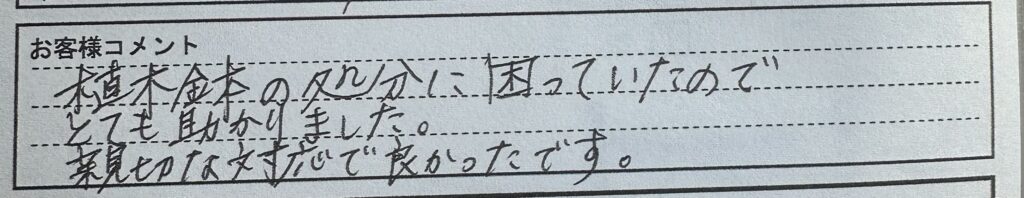 お客様コメント
植木鉢の処分に困っていたので
とても助かりました。
親切な対応で良かったです。